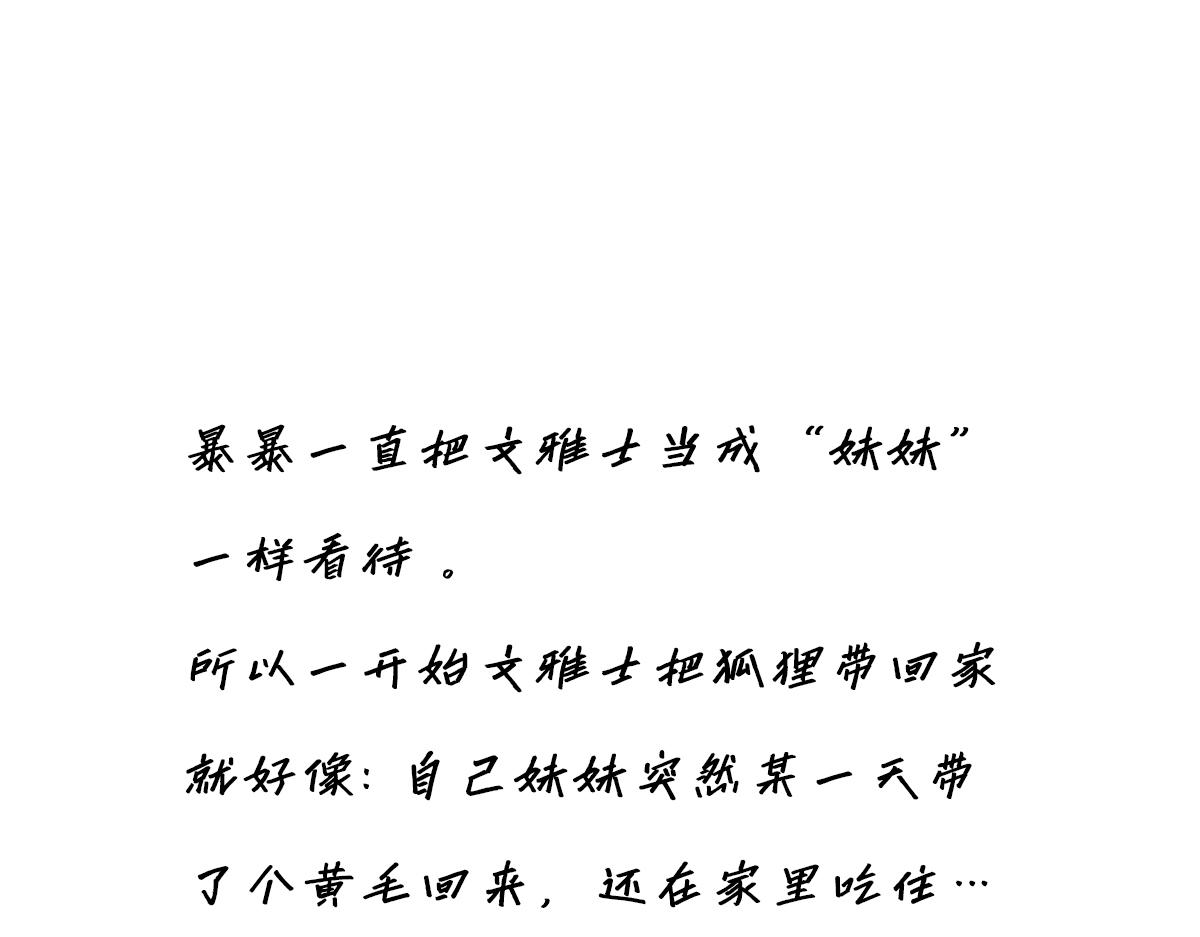 暴暴一直把文雅士当成“妹妹”
一样看待。
所以一开始文雅士把狐狸带回家
就好像:自己妹妹突然某一天带
了个黄毛回来,还在家里吃住…